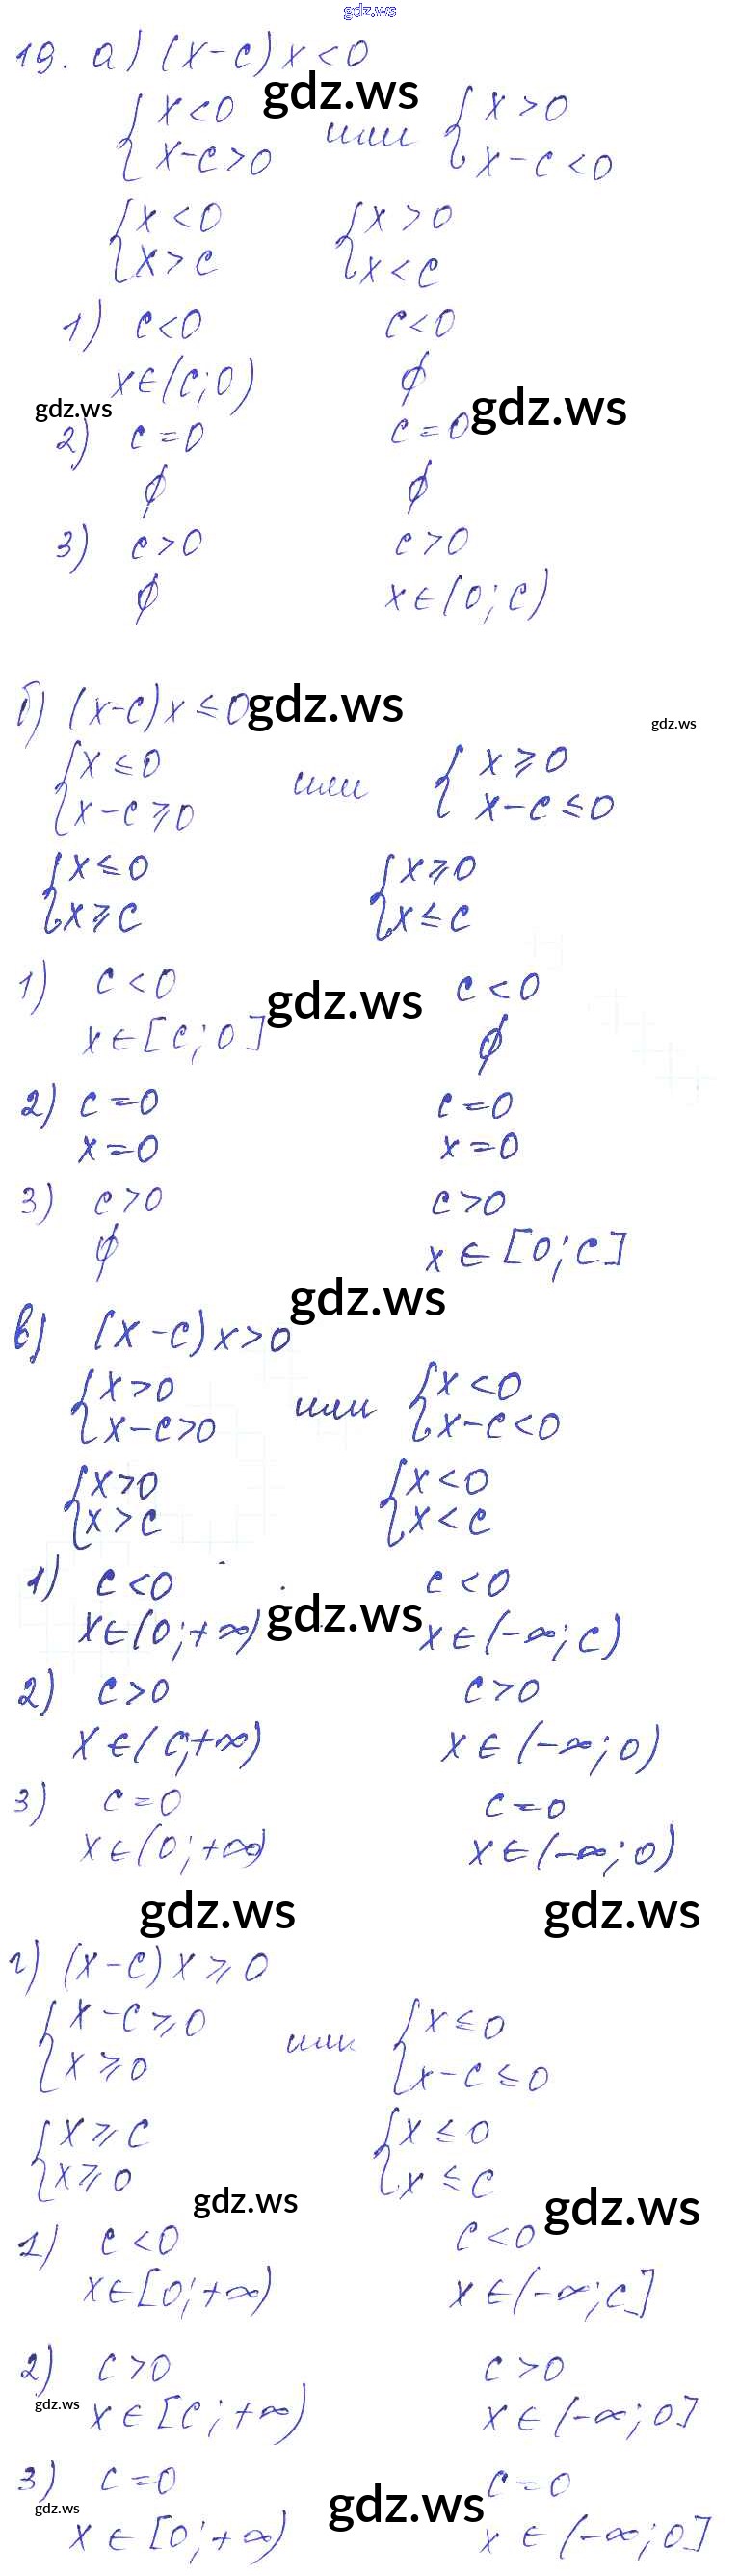 gdz.ws
19. а) (x-c)x<0
gdz.ws
{x<0 или {x>0
x-c>0 x-c<0
{x<0 {x>0
x>c x<c
1) c<0 c<0
x∈(c;0) ∅
gdz.ws gdz.ws
2) c=0 c=0
∅ ∅
3) c>0 c>0
∅ x∈(0;c)
б) (x-c)x≤0 gdz.ws
gdz.ws
{x≤0 или {x≥0
x-c≥0 x-c≤0
{x≤0 {x≥0
x≥c x≤c
1) c<0 gdz.ws c<0
x∈[c;0] ∅
2) c=0 c=0
x=0 x=0
3) c>0 c>0
∅ x∈[0;c]
gdz.ws
в) (x-c)x>0
{x>0 или {x<0
x-c>0 x-c<0
{x>0 {x<0
x>c x<c
1) c<0 c<0
x∈(0;+∞) gdz.ws x∈(-∞;c)
2) c>0 c>0
x∈(c;+∞) x∈(-∞;0)
3) c=0 c=0
x∈(0;+∞) x∈(-∞;0)
gdz.ws gdz.ws
г) (x-c)x≥0
{x-c≥0 или {x≤0
x≥0 x-c≤0
{x≥c {x≤0
x≥0 x≤c
gdz.ws gdz.ws
1) c<0 c<0
x∈[0;+∞) x∈(-∞;c]
2) c>0 c>0
gdz.ws
x∈[c;+∞) x∈(-∞;0]
3) c=0 c=0
gdz.ws gdz.ws
x∈[0;+∞) x∈(-∞;0]